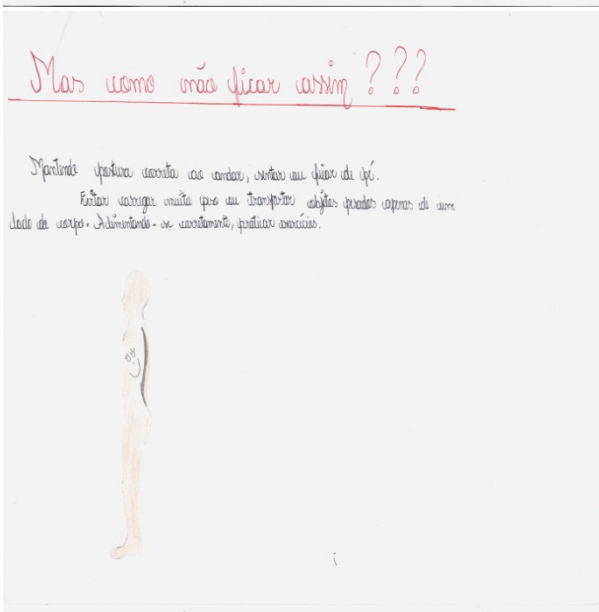 Mas como não ficar assim???
Mantendo postura correta ao andar, sentar ou ficar de pé.
Evitar carregar muito peso ou transportar objetos pesados apenas de um
lado do corpo. Alimentando-se corretamente, praticar exercícios.